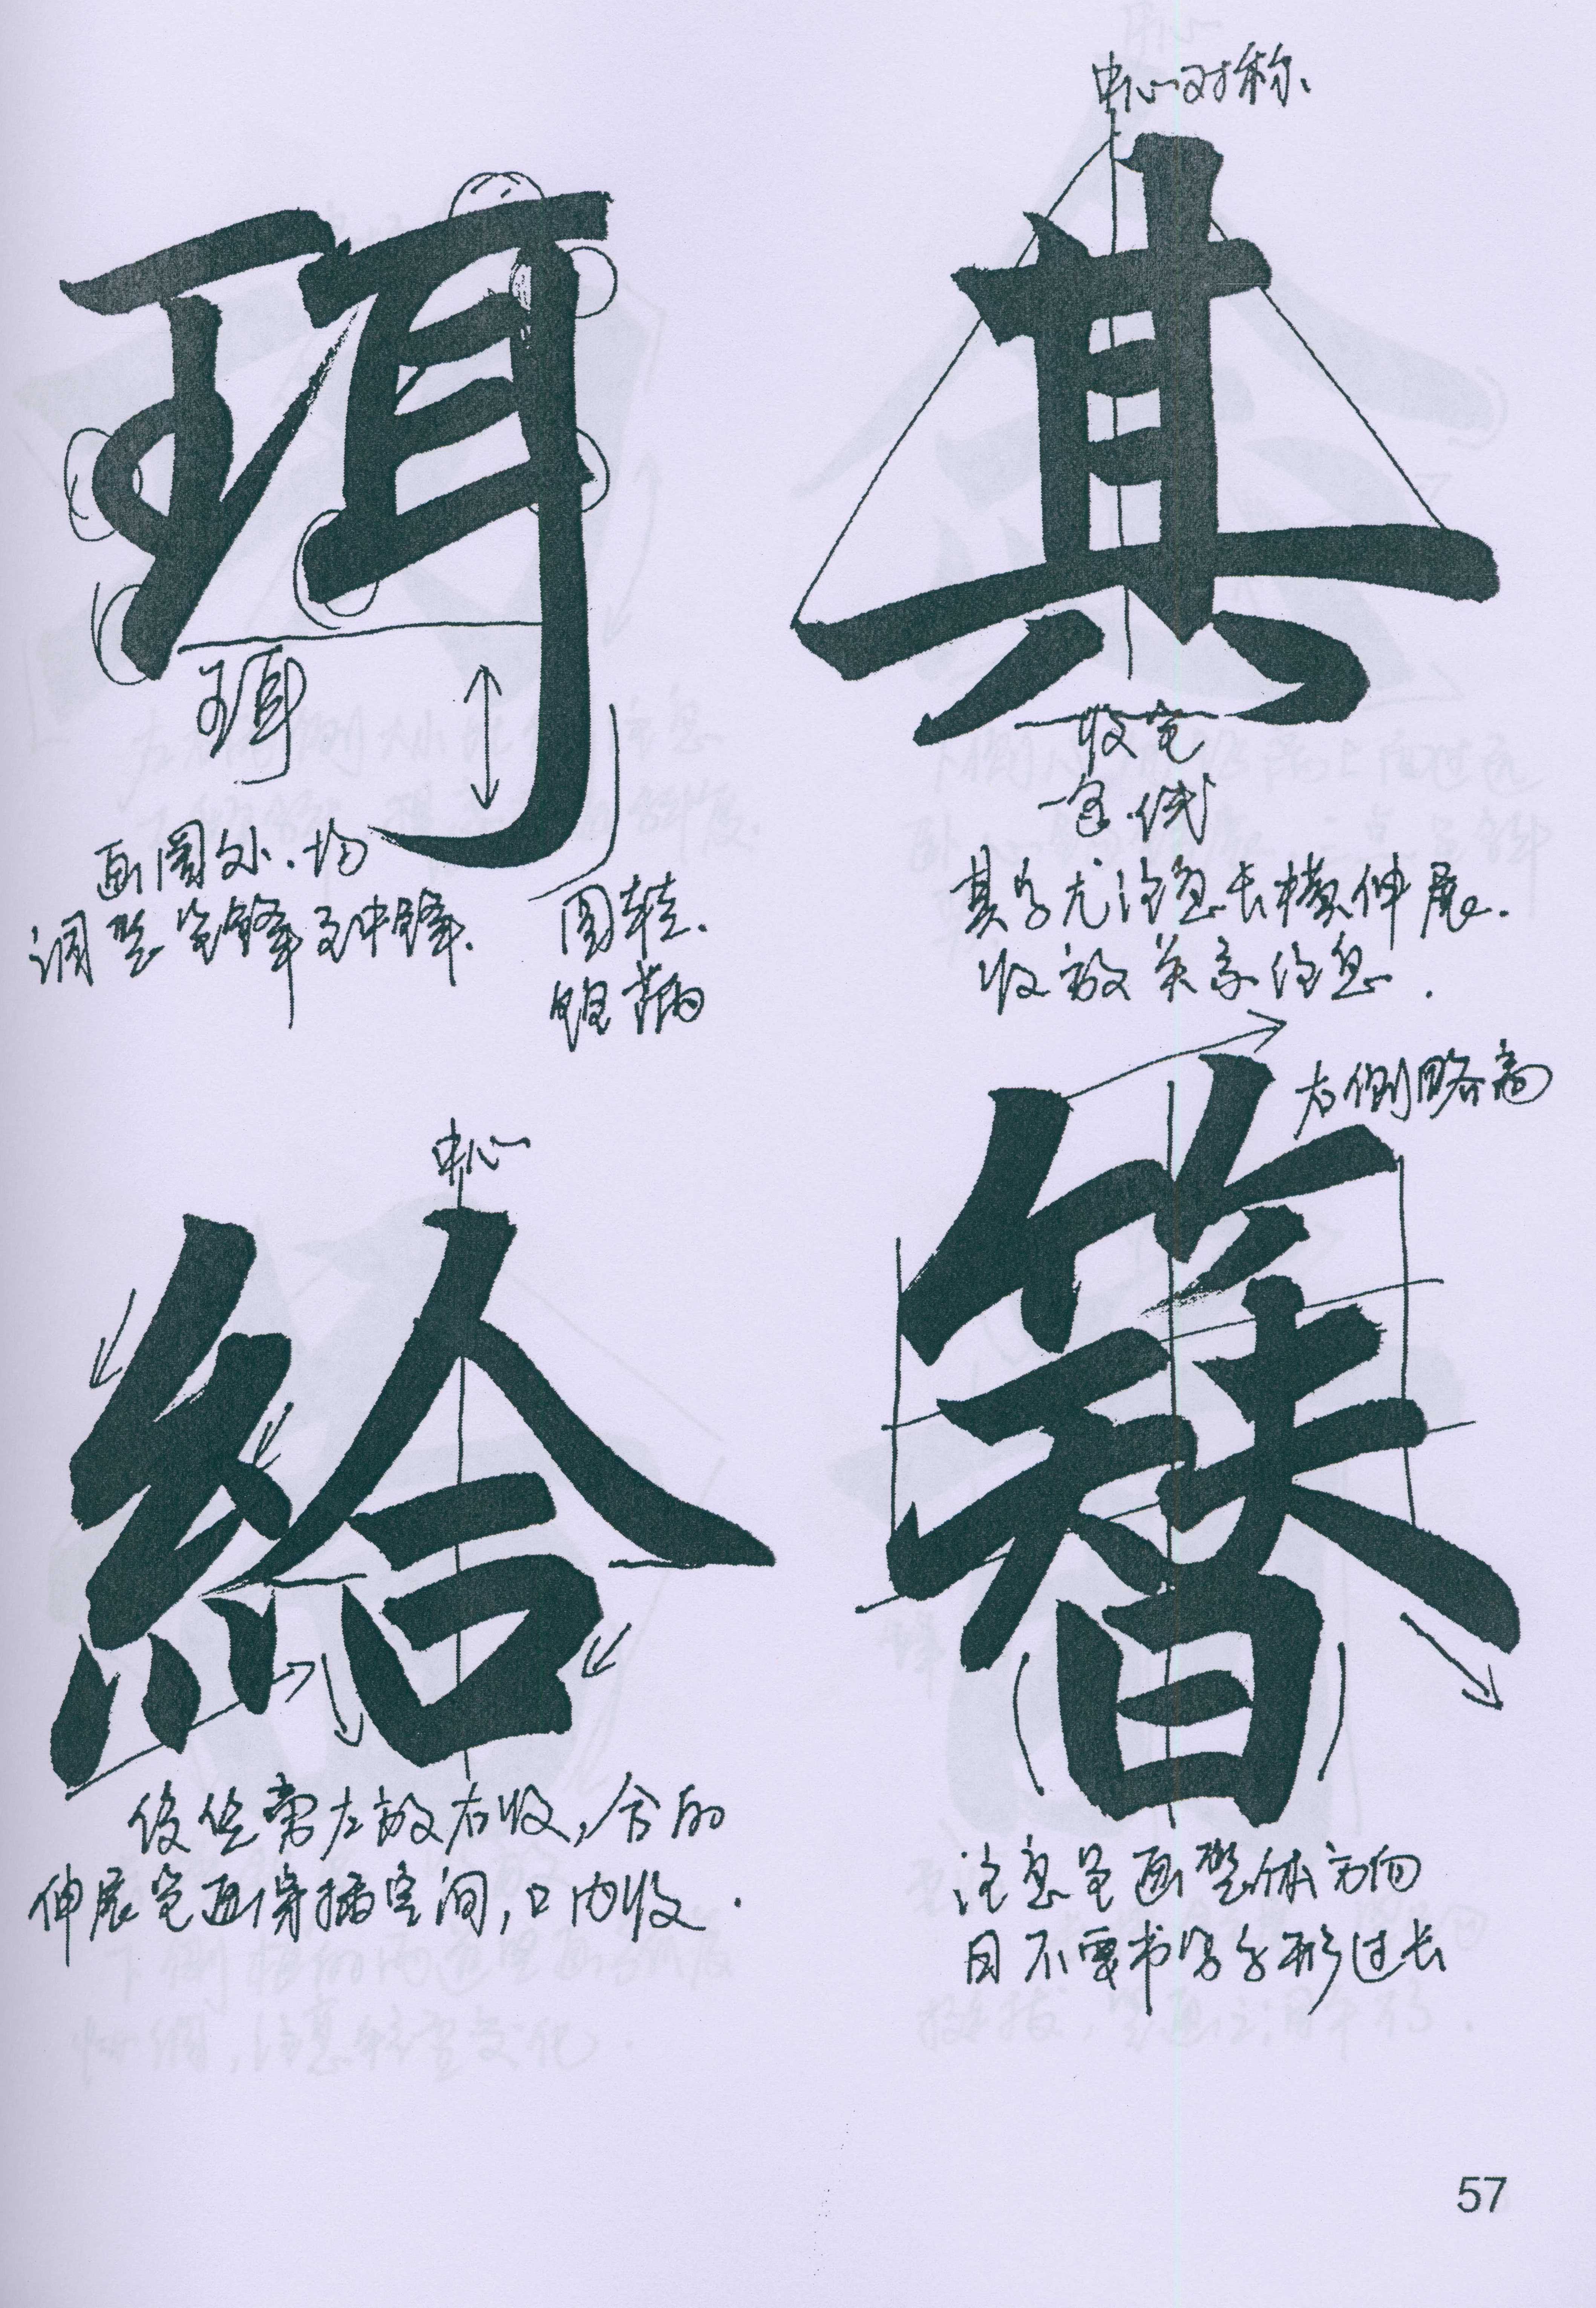 中心对称、
珥
其
珥
收笔
一条线
画圈处.均
调整笔锋至中锋.
圆转.
饱满
其字尤注意长横伸展.
收放关系注意.
右侧略高
中心
給
簪
绞丝旁左放右收,合的
伸展笔画穿插空间,口内收.
注意笔画整体方向
日不要书写字形过长
57